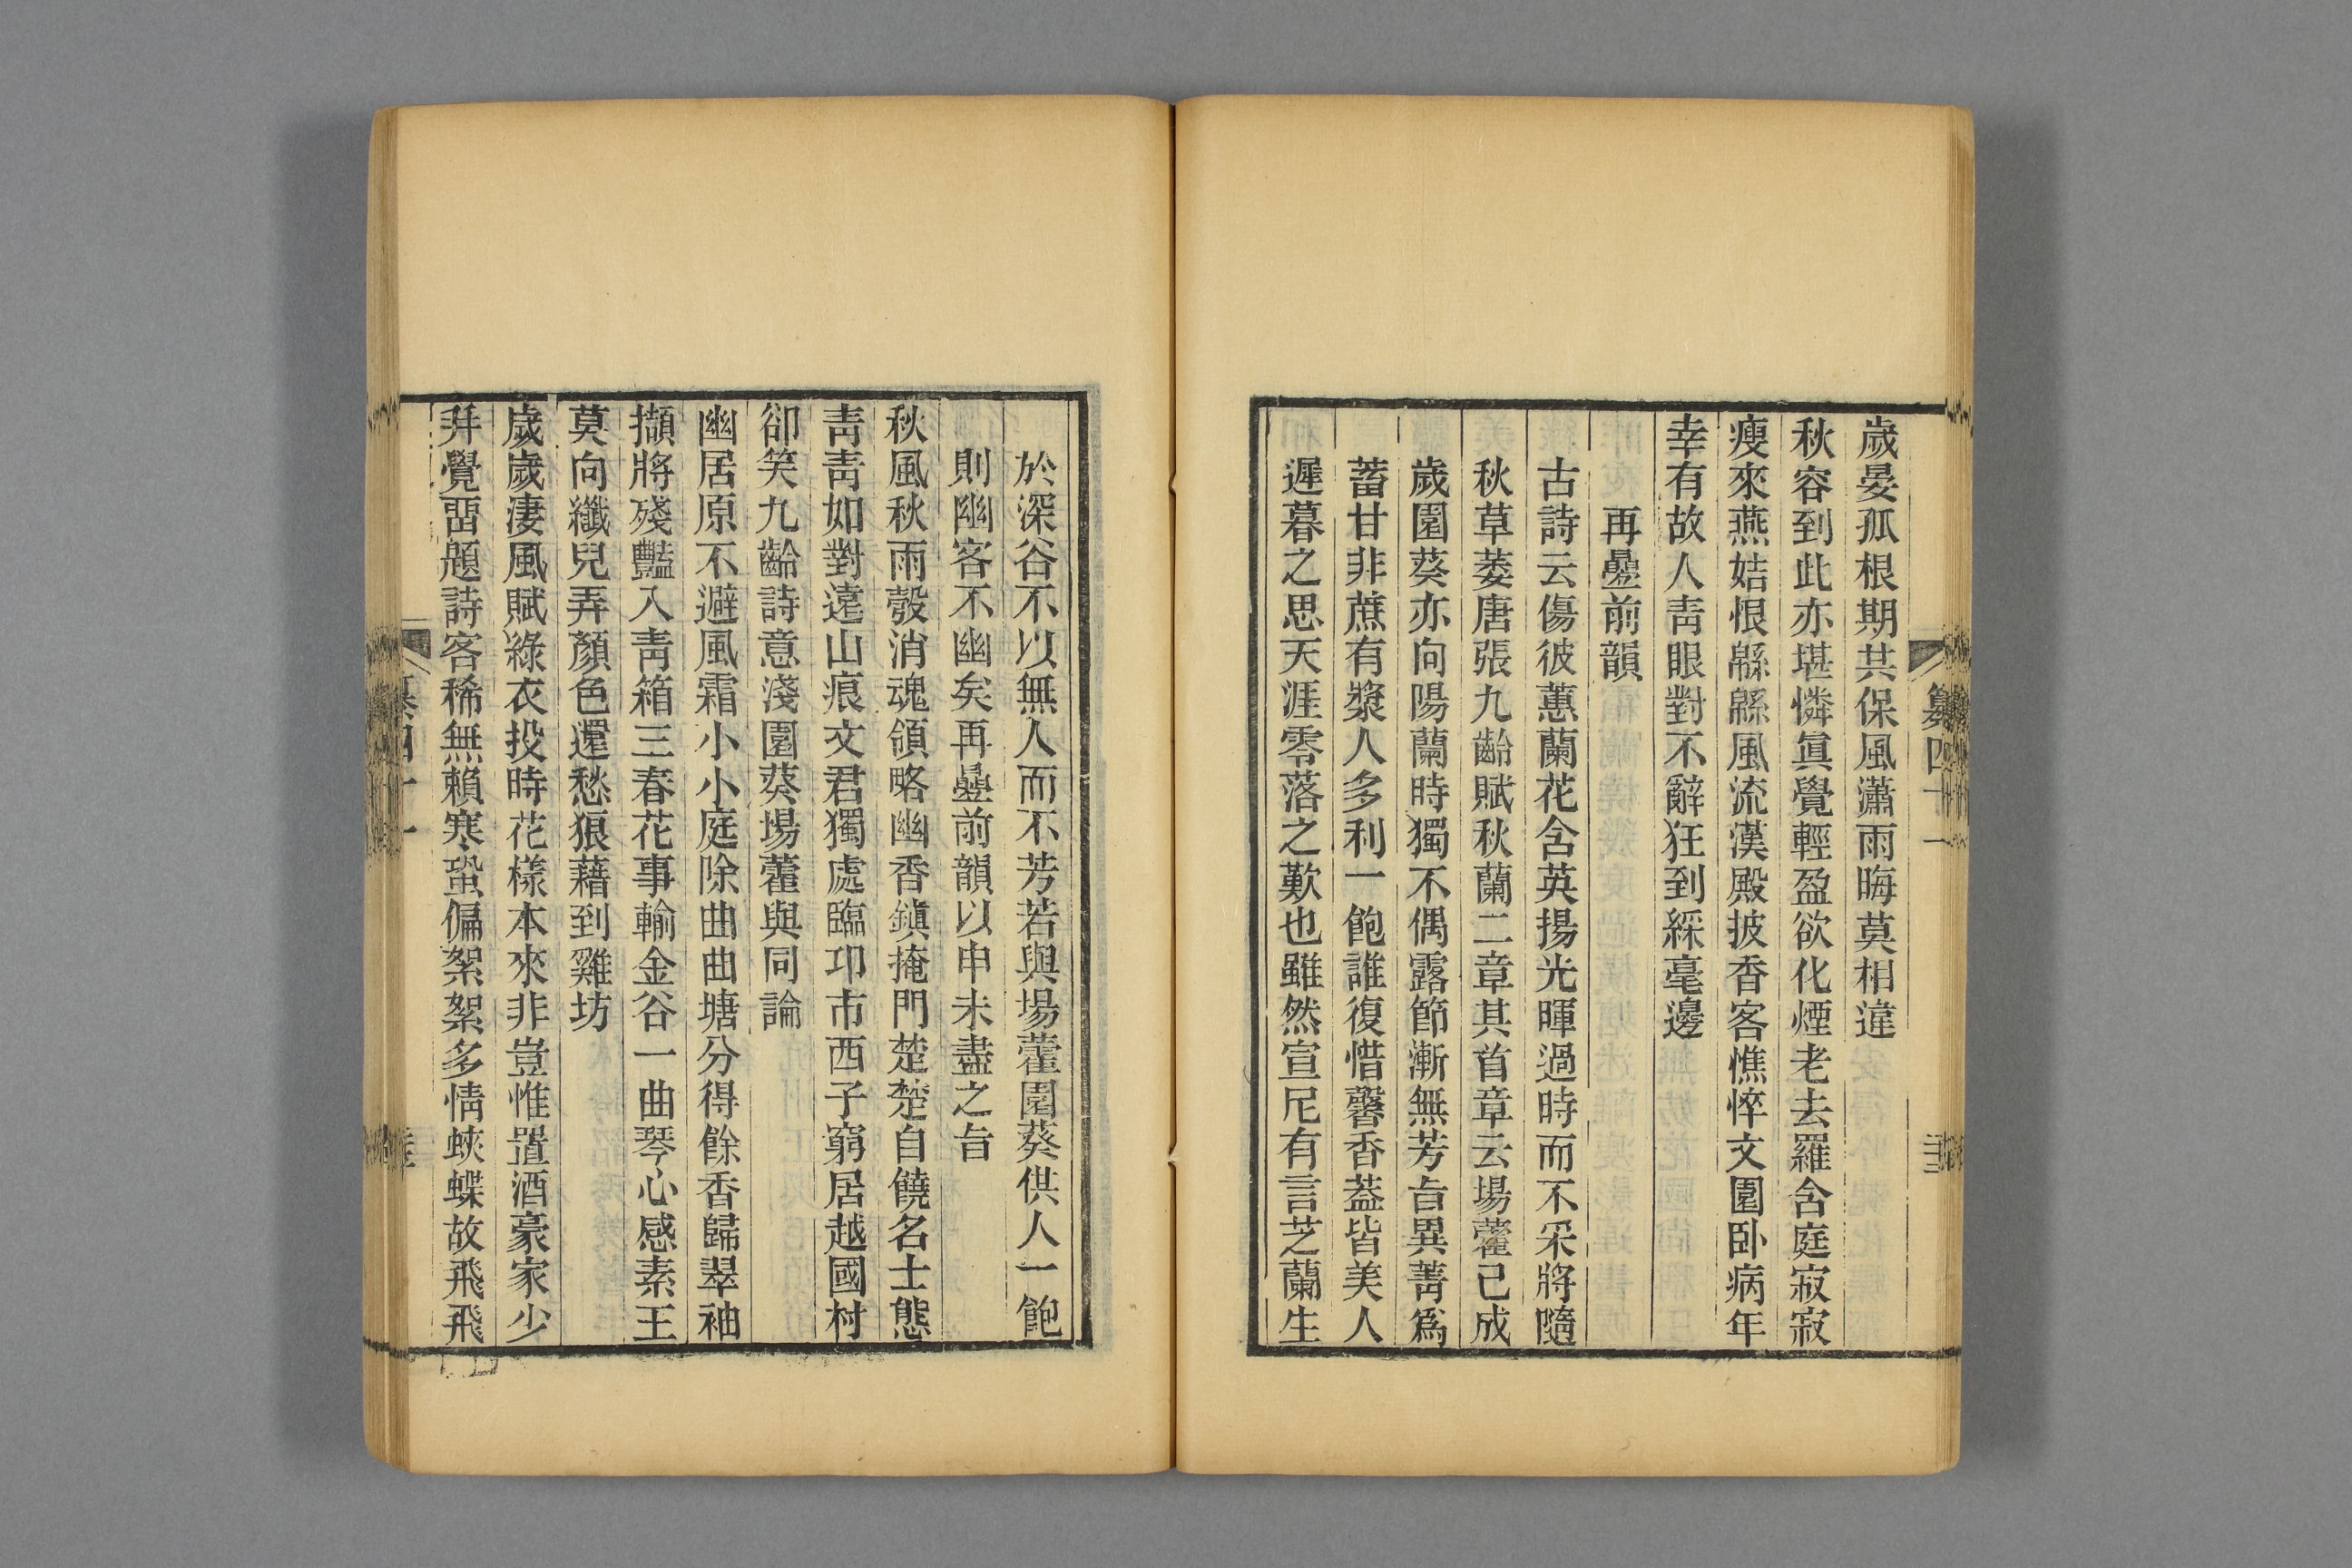 歲晏孤根期共保風瀟雨晦莫相違
秋容到此亦堪憐眞覺輕盈欲化煙老去羅含庭寂寂
瘦來燕姞恨緜緜風流漢殿披香客憔悴文園卧病年
幸有故人靑眼對不辭狂到綵毫邊
再疊前韻
古詩云傷彼蕙蘭花含英揚光暉過時而不采將隨
秋草萎唐張九齡賦秋蘭二章其首章云場藿已成
歲園葵亦向陽蘭時獨不偶露節漸無芳旨異菁爲
蓄甘非蔗有漿人多利一飽誰復惜馨香葢皆美人
遲暮之思天涯零落之歎也雖然宣尼有言芝蘭生
於深谷不以無人而不芳若與場藿園葵供人一飽
則幽客不幽矣再疊前韻以申未盡之旨
秋風秋雨彀消魂領略幽香鎭掩門楚楚自饒名士態
靑靑如對遠山痕文君獨處臨邛市西子窮居越國村
卻笑九齡詩意淺園葵場藿與同論
幽居原不避風霜小小庭除曲曲塘分得餘香歸翠袖
擷將殘豔入靑箱三春花事輸金谷一曲琴心感素王
莫向纖兒弄顏色還愁狼藉到雞坊
歲歲淒風賦綠衣投時花樣本來非豈惟置酒豪家少
幷覺畱題詩客稀無賴寒蛩偏絮絮多情蛺蝶故飛飛
纂四十一